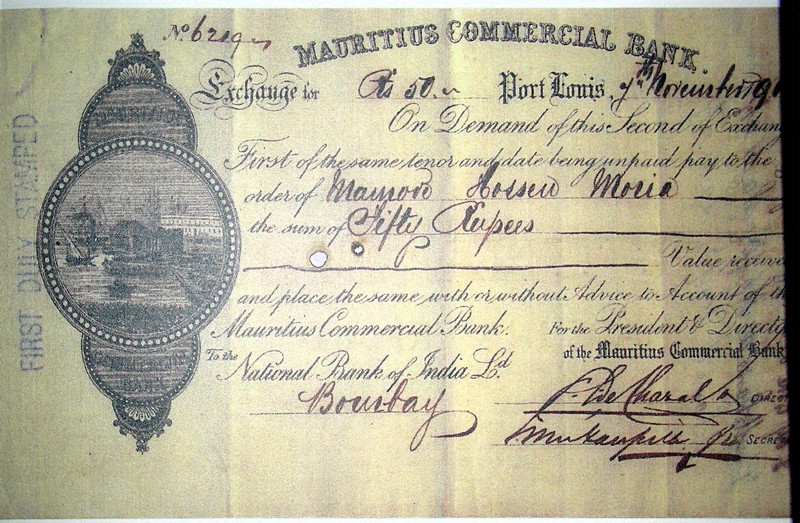 No. 62197
MAURITIUS COMMERCIAL BANK.
Exchange for Rs 50.~ Port Louis, 7th November 190
On Demand of this Second of Exchan
First of the same tenor and date being unpaid pay to the
order of Hossen Moria
the sum of Fifty Rupees
Value receive
and place the same with or without Advice to Account of th
Mauritius Commercial Bank. For the President & Direct
of the Mauritius Commercial Bank
To the
National Bank of India Ld
Bombay
DIRECT
SECRE
MAURITIUS
COMMERCIAL
BANK
FIRST DULY STAMPED